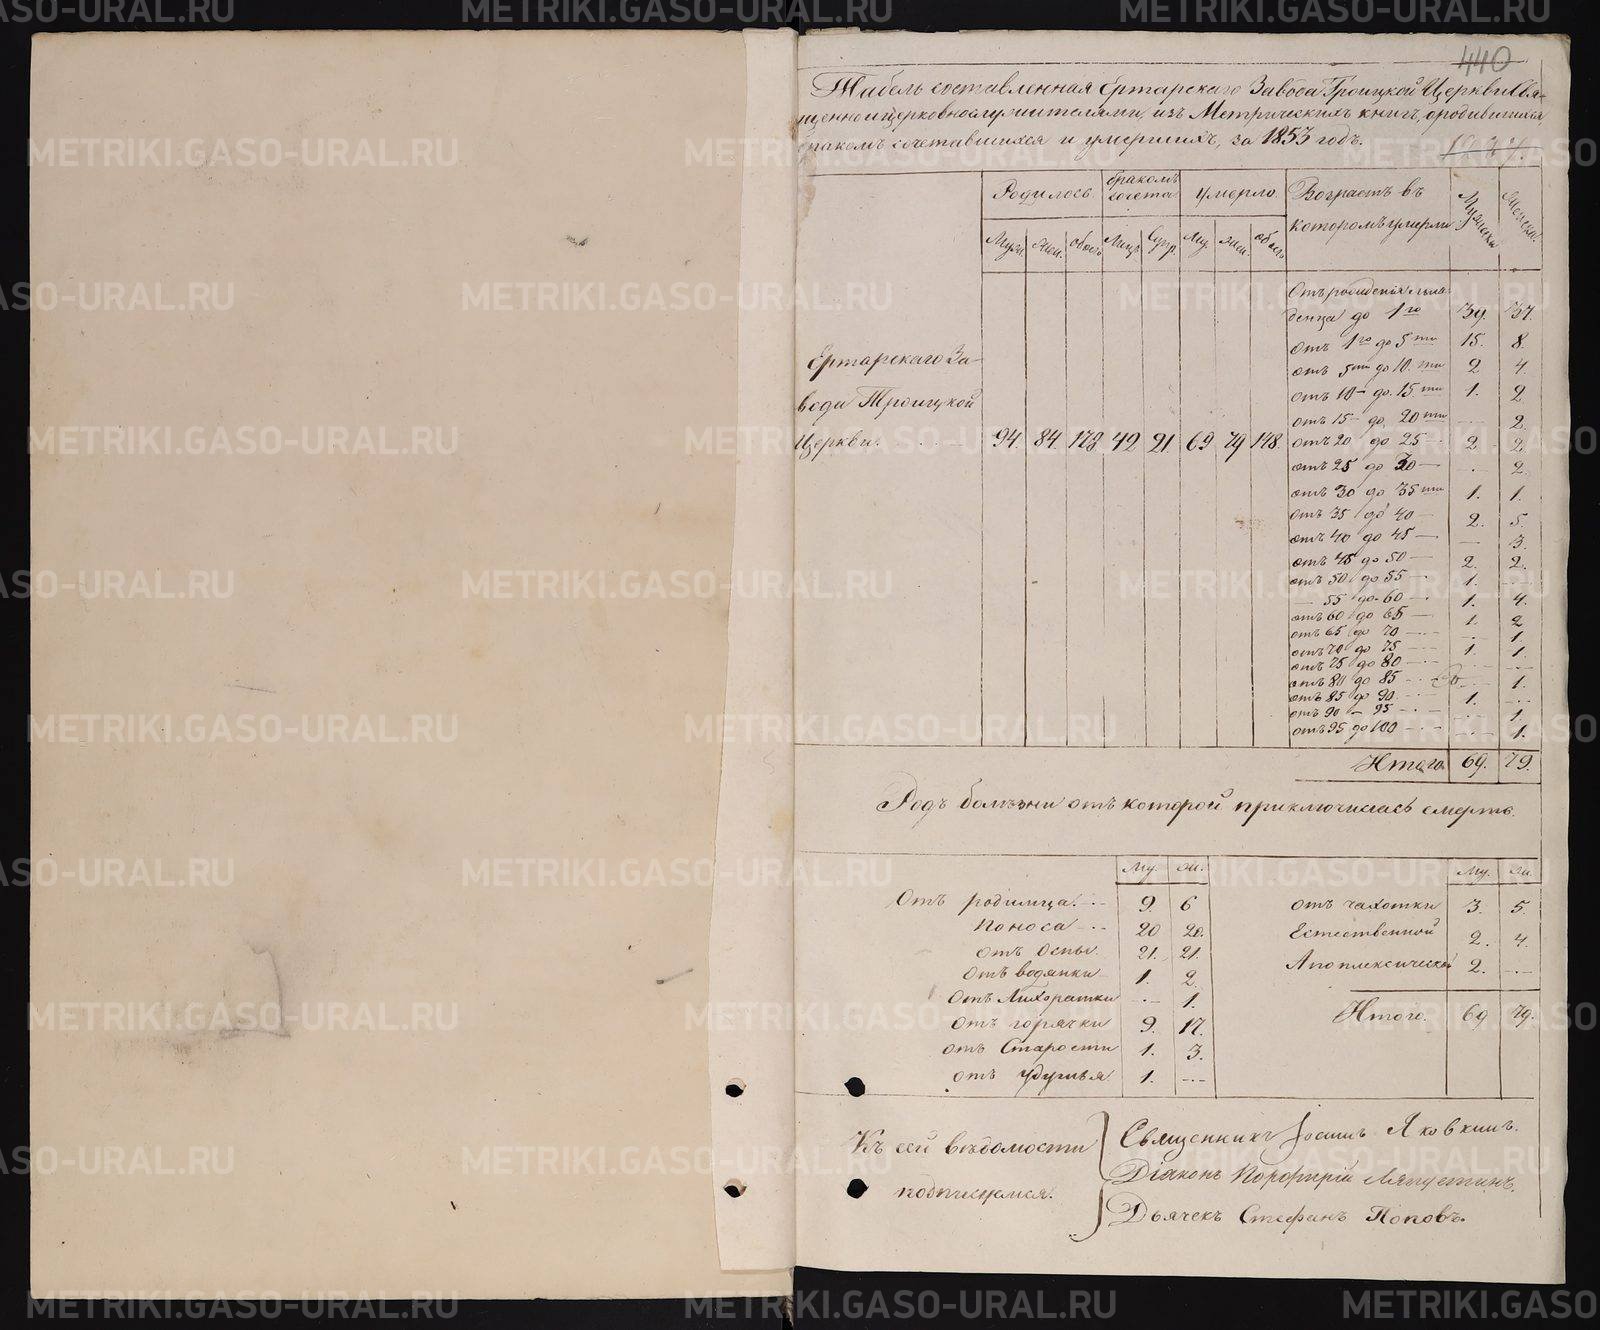 440
Табель составленная Ертарскаго Завода Троицкой Церкви Свя-
щенноцерковнослужителями, изъ Метрическихъ книгъ, о родившихся,
бракомъ сочетавшихся и умершихъ, за 1853 годъ.
Родилось. бракомъ сочета. умерло. Возрастъ въ которомъ умерли Мужеска Женска.
Муж. Жен. обоего Лицъ Супр. Му. жен. обоего
Отъ рожденія мла-
денца до 1го 39. 37.
отъ 1го до 5ти 15. 8.
отъ 5ти до 10.ти 2 4.
отъ 10 – до 15.ти 1. 2
отъ 15 – до 20ти 2.
Ертарскаго За-
вода Троицкой
Церкви. 94. 84. 178 42 21. 69 79 148.
отъ 20 до 25 2 2
отъ 25 до 30 – 2.
отъ 30 до 35ти 1. 1.
отъ 35 до 40 – 2. 5.
отъ 40 до 45 – – 3.
отъ 45 до 50 – 2. 2.
отъ 50 до 55 – 1.
– 55 до 60 – 1. 4.
отъ 60 до 65 – 1. 2
отъ 65 до 70 – 1.
отъ 70 до 75 – 1. 1.
отъ 75 до 80 –
отъ 80 до 85 – 1.
отъ 85 до 90. 1.
отъ 90 – 95 – 1.
отъ 95 до 100 – 1.
Итого. 69. 79.
Родъ болѣзни отъ которой приключилась смерть.
му. жи. му. жи.
Отъ родимца. 9. 6
Поноса 20 20.
отъ Оспы. 21. 21.
Отъ водянки 1. 2.
отъ Лихоратки 1.
отъ горячки 9. 17.
отъ Старости 1. 3.
отъ удушья 1.
отъ чахотки 3. 5.
Естественной 2. 4.
Апоплексической 2.
Итого. 69 79.
Къ сей вѣдомости
подпишемся.
Священникъ Іоаннъ Яковкинъ.
Діяконъ Порфирій Ляпустинъ.
Дьячекъ Стефанъ Поповъ.
METRIKI.GASO-URAL.RU